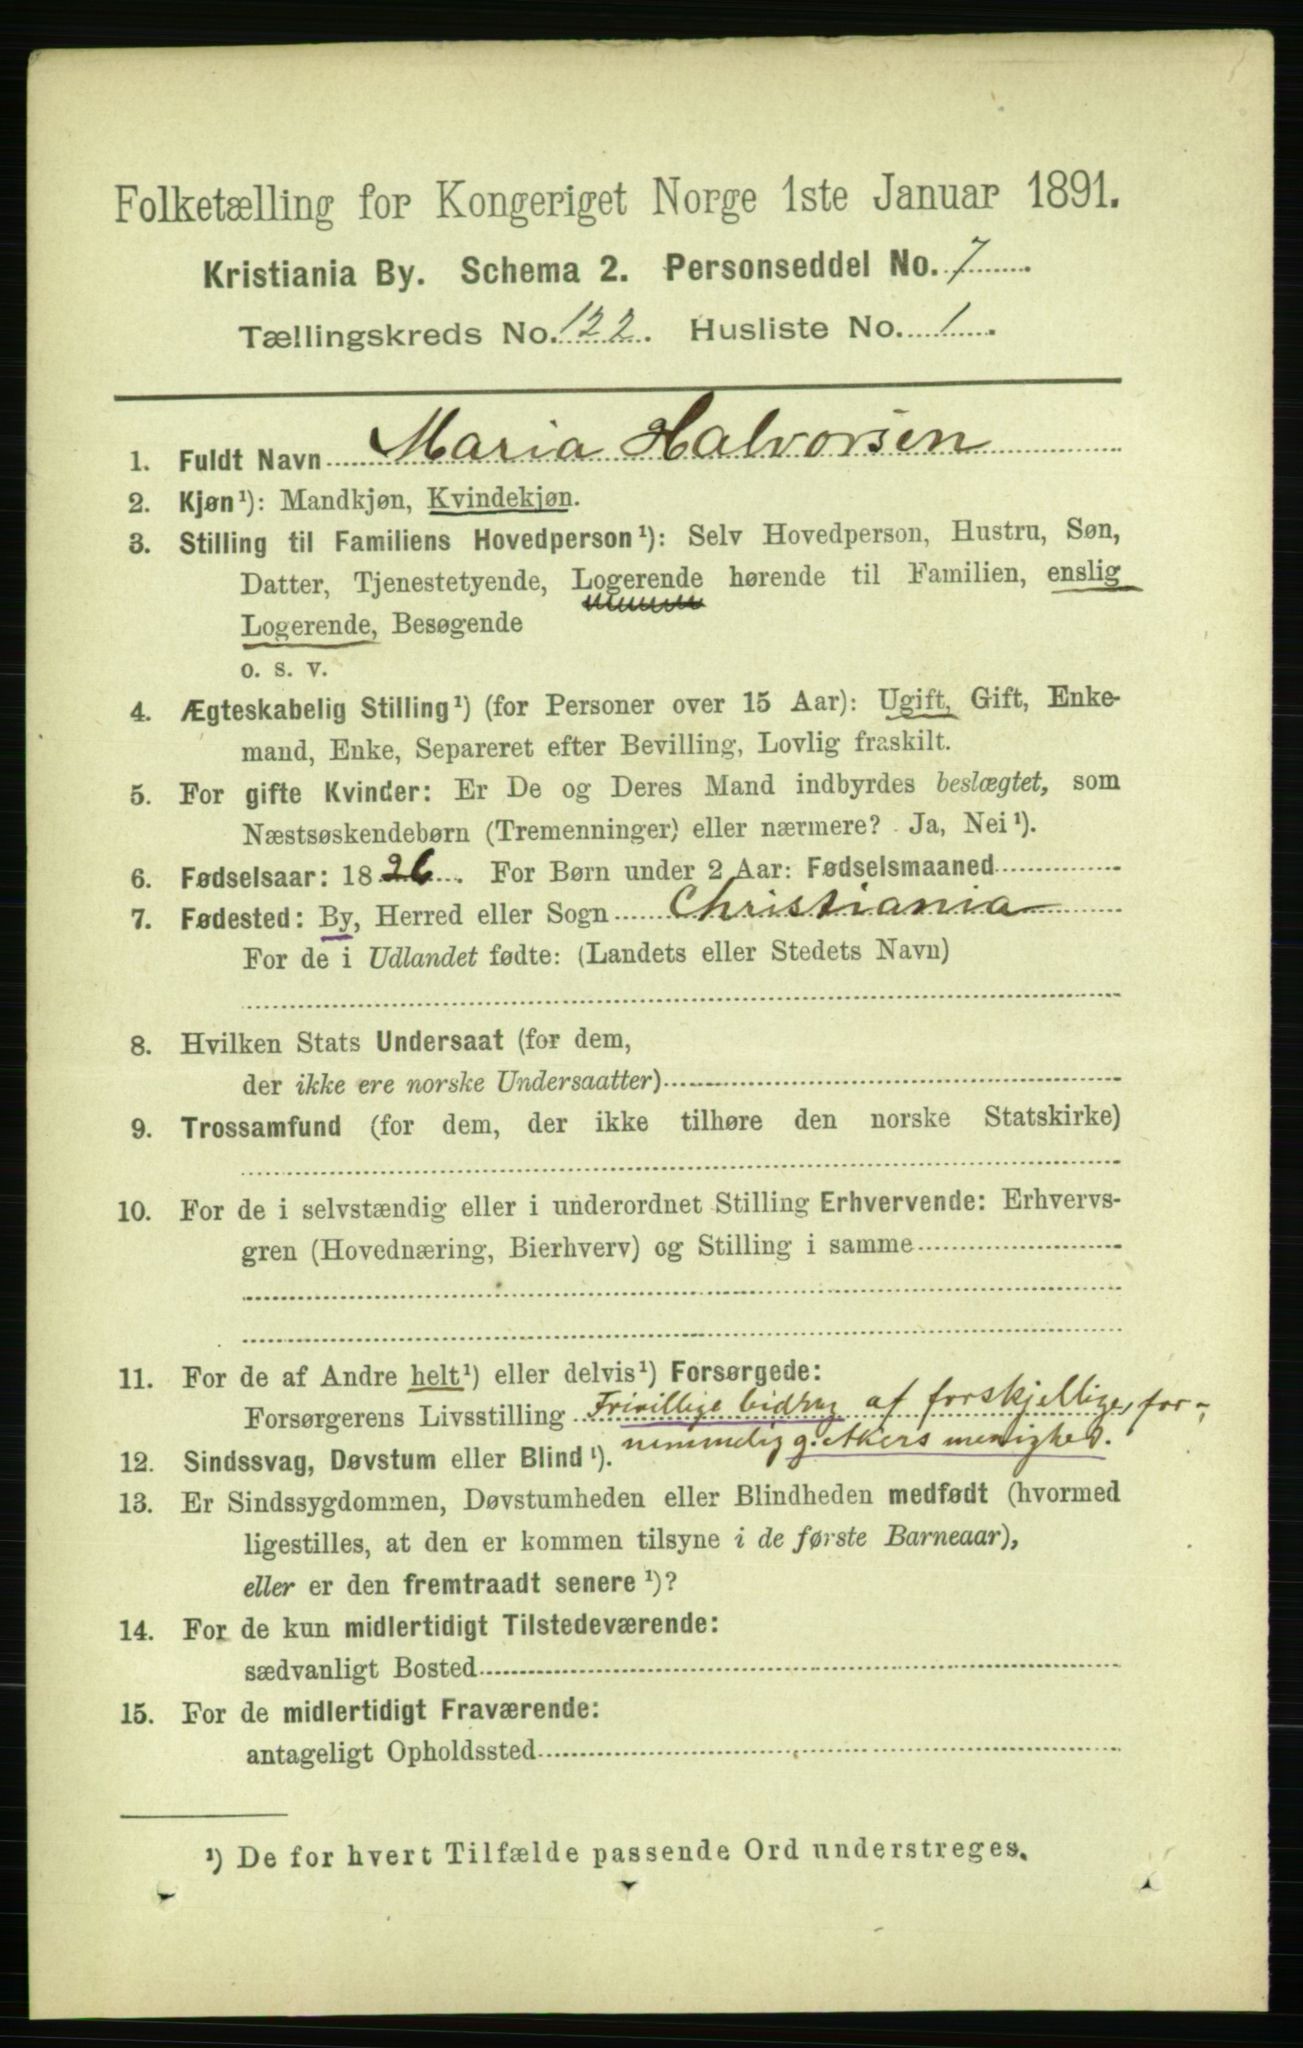 Folketælling for Kongeriget Norge 1ste Januar 1891.
Kristiania By. Schema 2. Personseddel No. 7
Tællingskreds No. 122. Husliste No. 1.
1. Fuldt Navn Maria Halvorsen
2. Kjøn¹): Mandkjøn, Kvindekjøn.
3. Stilling til Familiens Hovedperson¹): Selv Hovedperson, Hustru, Søn,
Datter, Tjenestetyende, Logerende hørende til Familien, enslig
Logerende, Besøgende
o. s. v.
4. Ægteskabelig Stilling¹) (for Personer over 15 Aar): Ugift, Gift, Enke-
mand, Enke, Separeret efter Bevilling, Lovlig fraskilt.
5. For gifte Kvinder: Er De og Deres Mand indbyrdes beslægtet, som
Næstsøskendebørn (Tremenninger) eller nærmere? Ja, Nei¹).
6. Fødselsaar: 1826. For Børn under 2 Aar: Fødselsmaaned
7. Fødested: By, Herred eller Sogn Christiania
For de i Udlandet fødte: (Landets eller Stedets Navn)
8. Hvilken Stats Undersaat (for dem,
der ikke ere norske Undersaatter)
9. Trossamfund (for dem, der ikke tilhøre den norske Statskirke)
10. For de i selvstændig eller i underordnet Stilling Erhvervende: Erhvervs-
gren (Hovednæring, Bierhverv) og Stilling i samme
11. For de af Andre helt¹) eller delvis¹) Forsørgede:
Forsørgerens Livsstilling Frivillige bidrag af forskjellige, for-
nemmelig g. Akers menighed.
12. Sindssvag, Døvstum eller Blind¹).
13. Er Sindssygdommen, Døvstumheden eller Blindheden medfødt (hvormed
ligestilles, at den er kommen tilsyne i de første Barneaar),
eller er den fremtraadt senere¹)?
14. For de kun midlertidigt Tilstedeværende:
sædvanligt Bosted
15. For de midlertidigt Fraværende:
antageligt Opholdssted
¹) De for hvert Tilfælde passende Ord understreges.